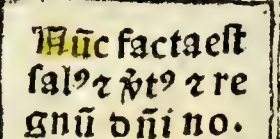 Nūc facta est
salꝰ ⁊ v̄tꝰ ⁊ re
gnū dn̄i no.